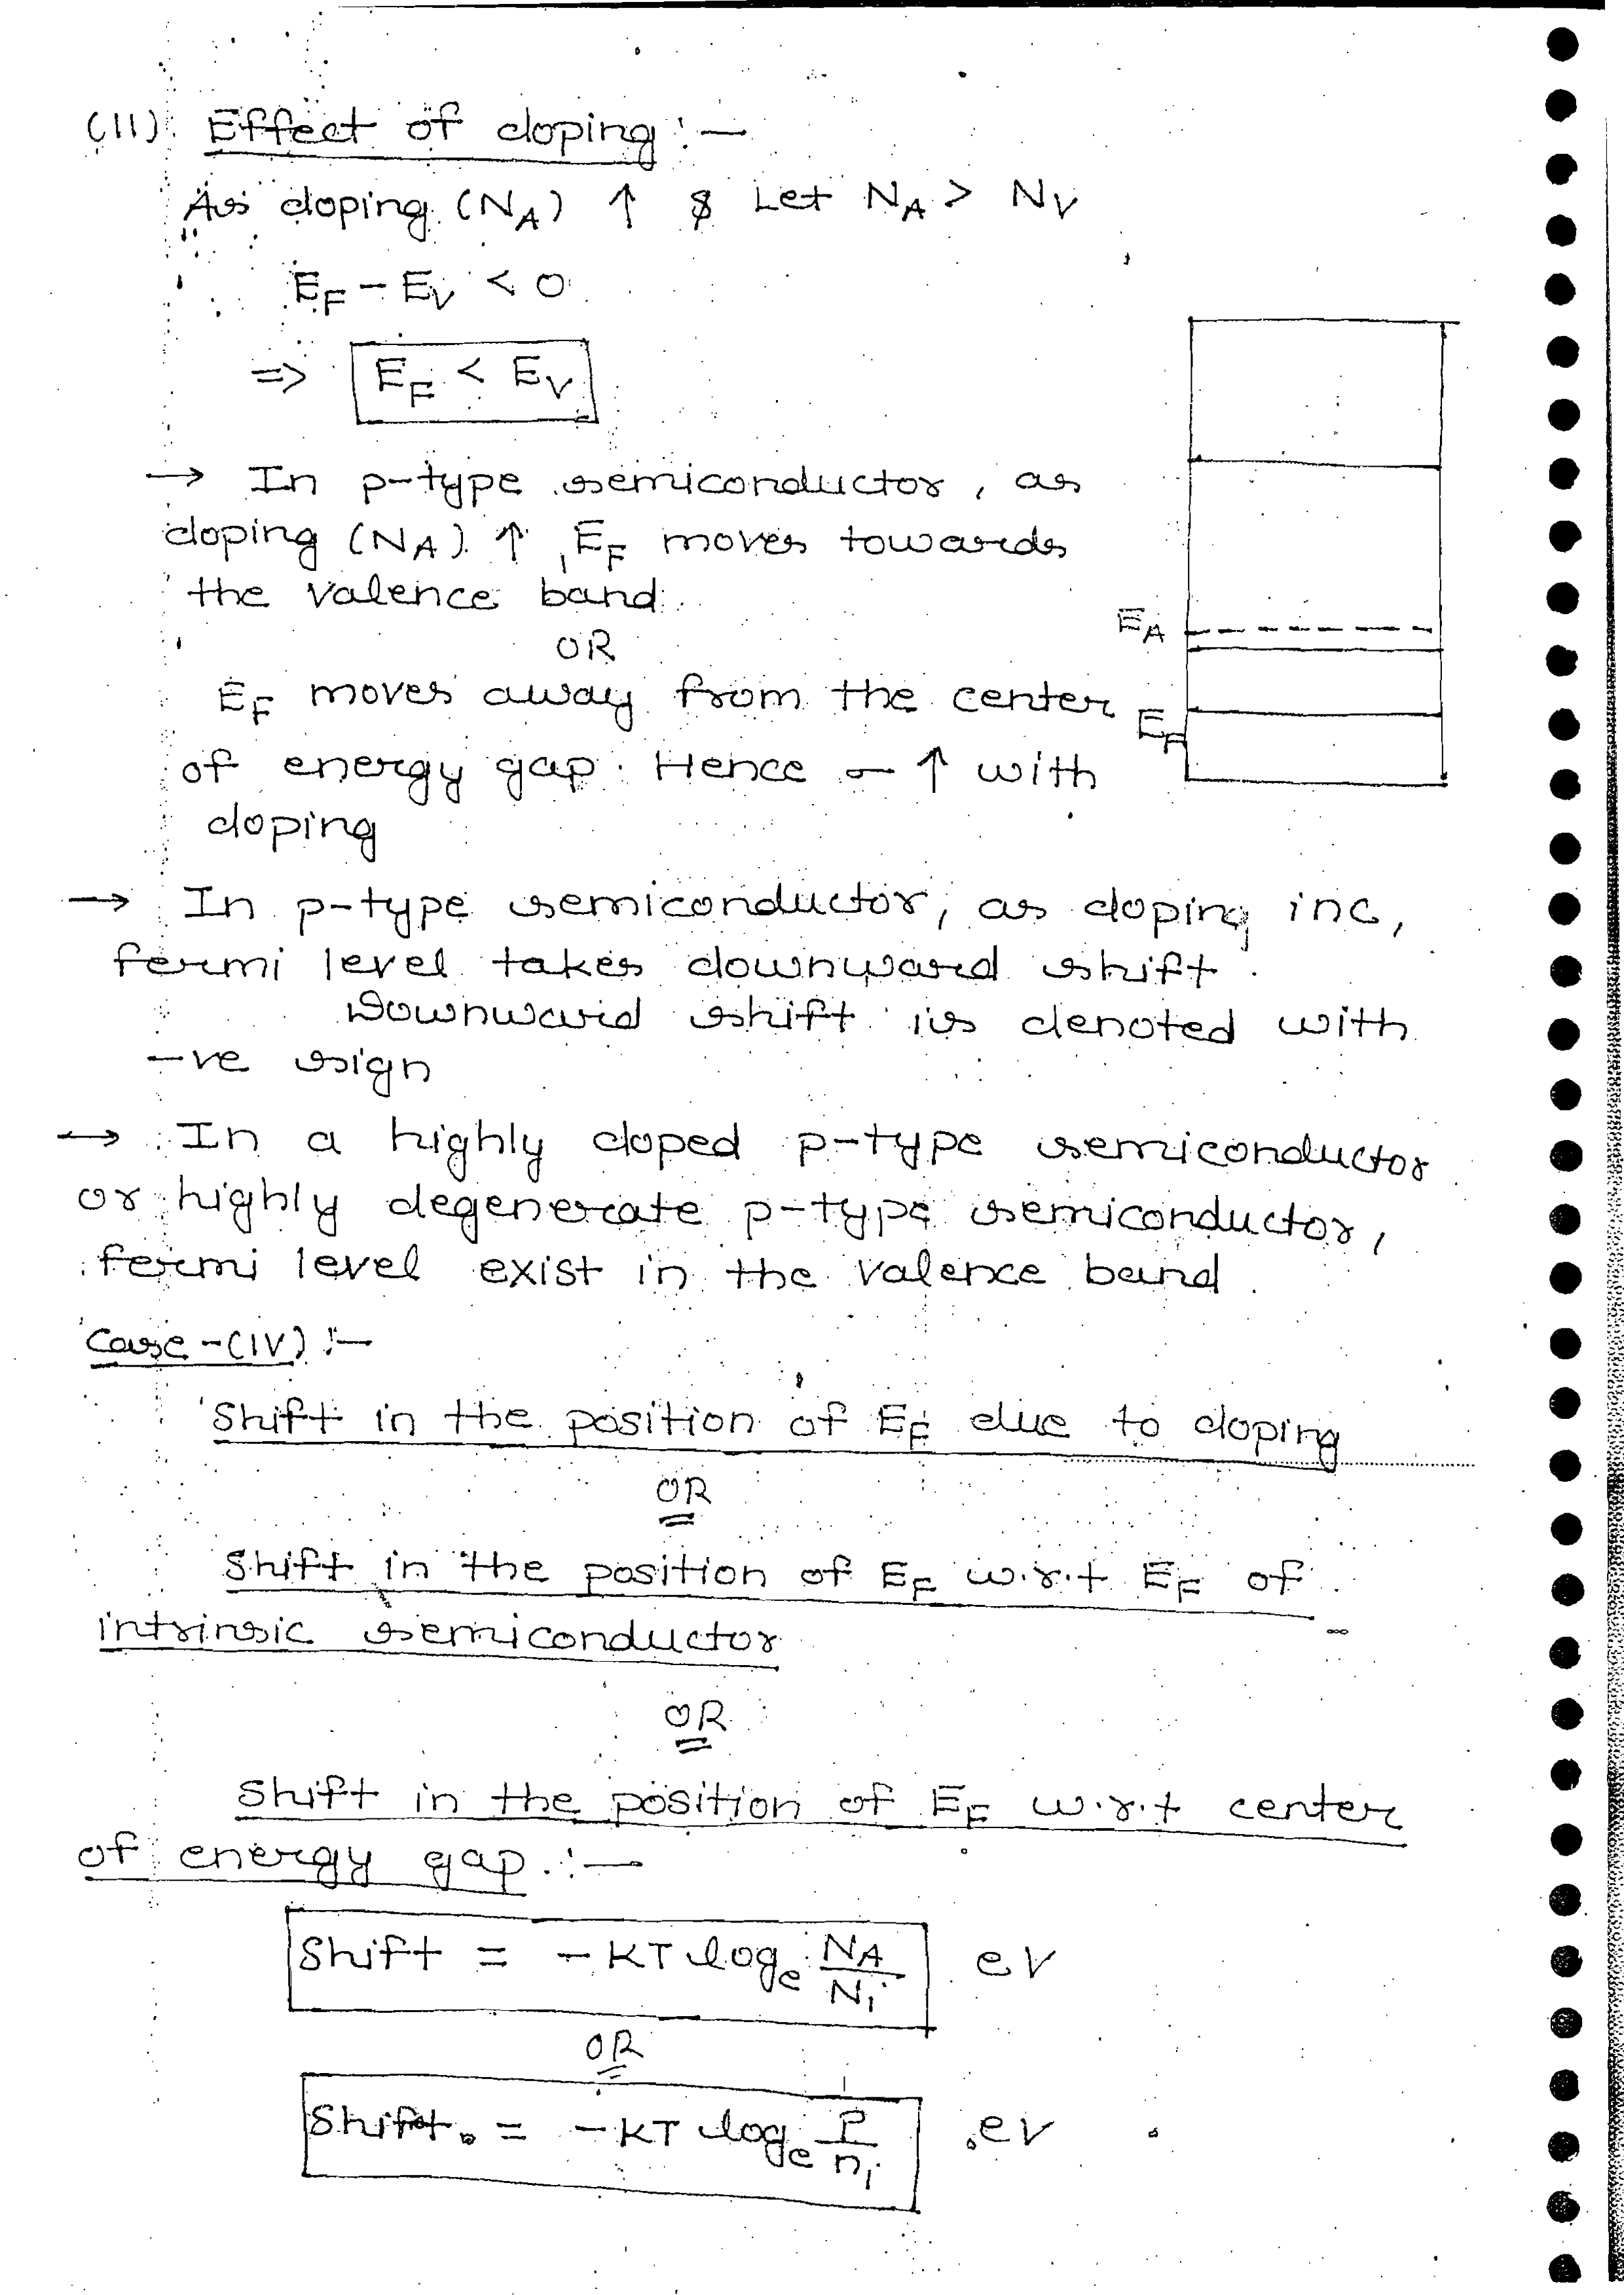 (II) Effect of doping :—
As doping (NA) ↑ & Let NA > NV
EF - EV < 0
=> EF < EV
→ In p-type semiconductor, as
doping (NA) ↑, EF moves towards
the valence band
EA
OR
EF moves away from the center
EF
of energy gap. Hence σ ↑ with
doping
→ In p-type semiconductor, as doping inc,
fermi level takes downward shift.
Downward shift is denoted with
-ve sign
→ In a highly doped p-type semiconductor
or highly degenerate p-type semiconductor,
fermi level exist in the valence band.
Case-(IV) :—
Shift in the position of EF due to doping
OR
Shift in the position of EF w.r.t EF of
intrinsic semiconductor
OR
Shift in the position of EF w.r.t center
of energy gap. :—
Shift = -KT loge NA/Ni eV
OR
Shift = -KT loge P/ni eV